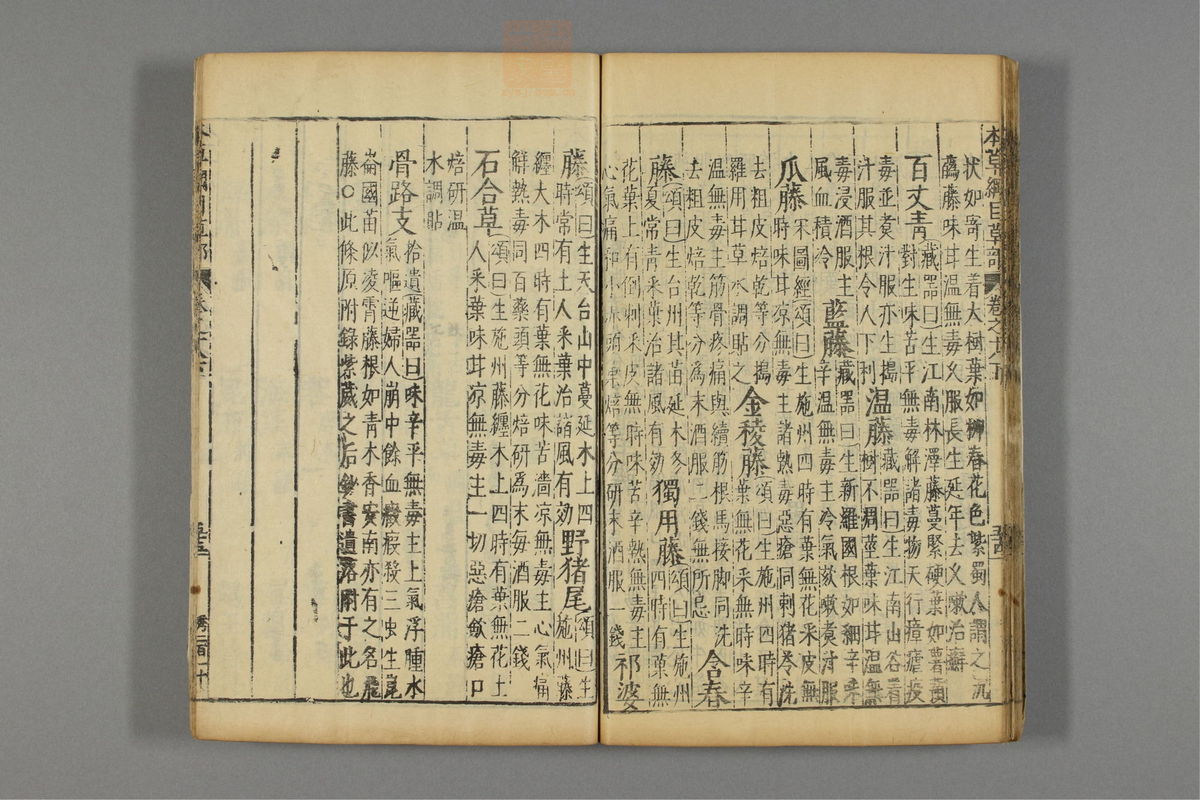 本草綱目草部 卷之十八下
狀如寄生着大樹葉如柳春花色紫蜀人謂之沉
藤味甘溫無毒久服長生延年去久嗽治癬
百丈青藏器曰生江南林澤藤蔓緊硬葉如薯蕷
對生味苦平無毒解諸毒物天行瘴瘧疫
毒並煑汁服亦生搗
汁服其根令人下利
溫藤藏器曰生江南山谷着
樹不凋莖葉味甘溫無
毒浸酒服主
風血積冷
藍藤藏器曰生新羅國根如細辛味
辛溫無毒主冷氣欬嗽煑汁服
瓜藤宋圖經頌曰生施州四時有葉無花采皮無
時味甘凉無毒主諸熱毒惡瘡同刺猪苓洗
去粗皮焙乾等分搗
羅用甘草水調貼之
金稜藤頌曰生施州四時有
葉無花采無時味辛
溫無毒主筋骨疼痛與續筋根馬接脚同洗
去粗皮焙乾等分爲末酒服二錢無所忌
含春
藤頌曰生台州其苗延木冬
夏常青采葉治諸風有効
獨用藤頌曰生施州
四時有葉無
花葉上有倒刺采皮無時味苦辛熱無毒主
心氣痛和小赤頭葉焙等分研末酒服一錢
祁婆
藤頌曰生天台山中蔓延木上四
時常有土人采葉治諸風有効
野猪尾頌曰生
施州藤
纏大木四時有葉無花味苦濇凉無毒主心氣痛
解熱毒同百藥頭等分焙研爲末每酒服二錢
石合草頌曰生施州藤纏木上四時有葉無花土
人采葉味甘凉無毒主一切惡瘡斂瘡口
焙研溫
水調貼
骨路支拾遺藏器曰味辛平無毒主上氣浮腫水
氣嘔逆婦人崩中餘血癥瘕殺三虫生崑
崙國苗似凌霄藤根如青木香安南亦有之名飛
藤○此條原附錄紫葳之后鈔書遺落附于此也